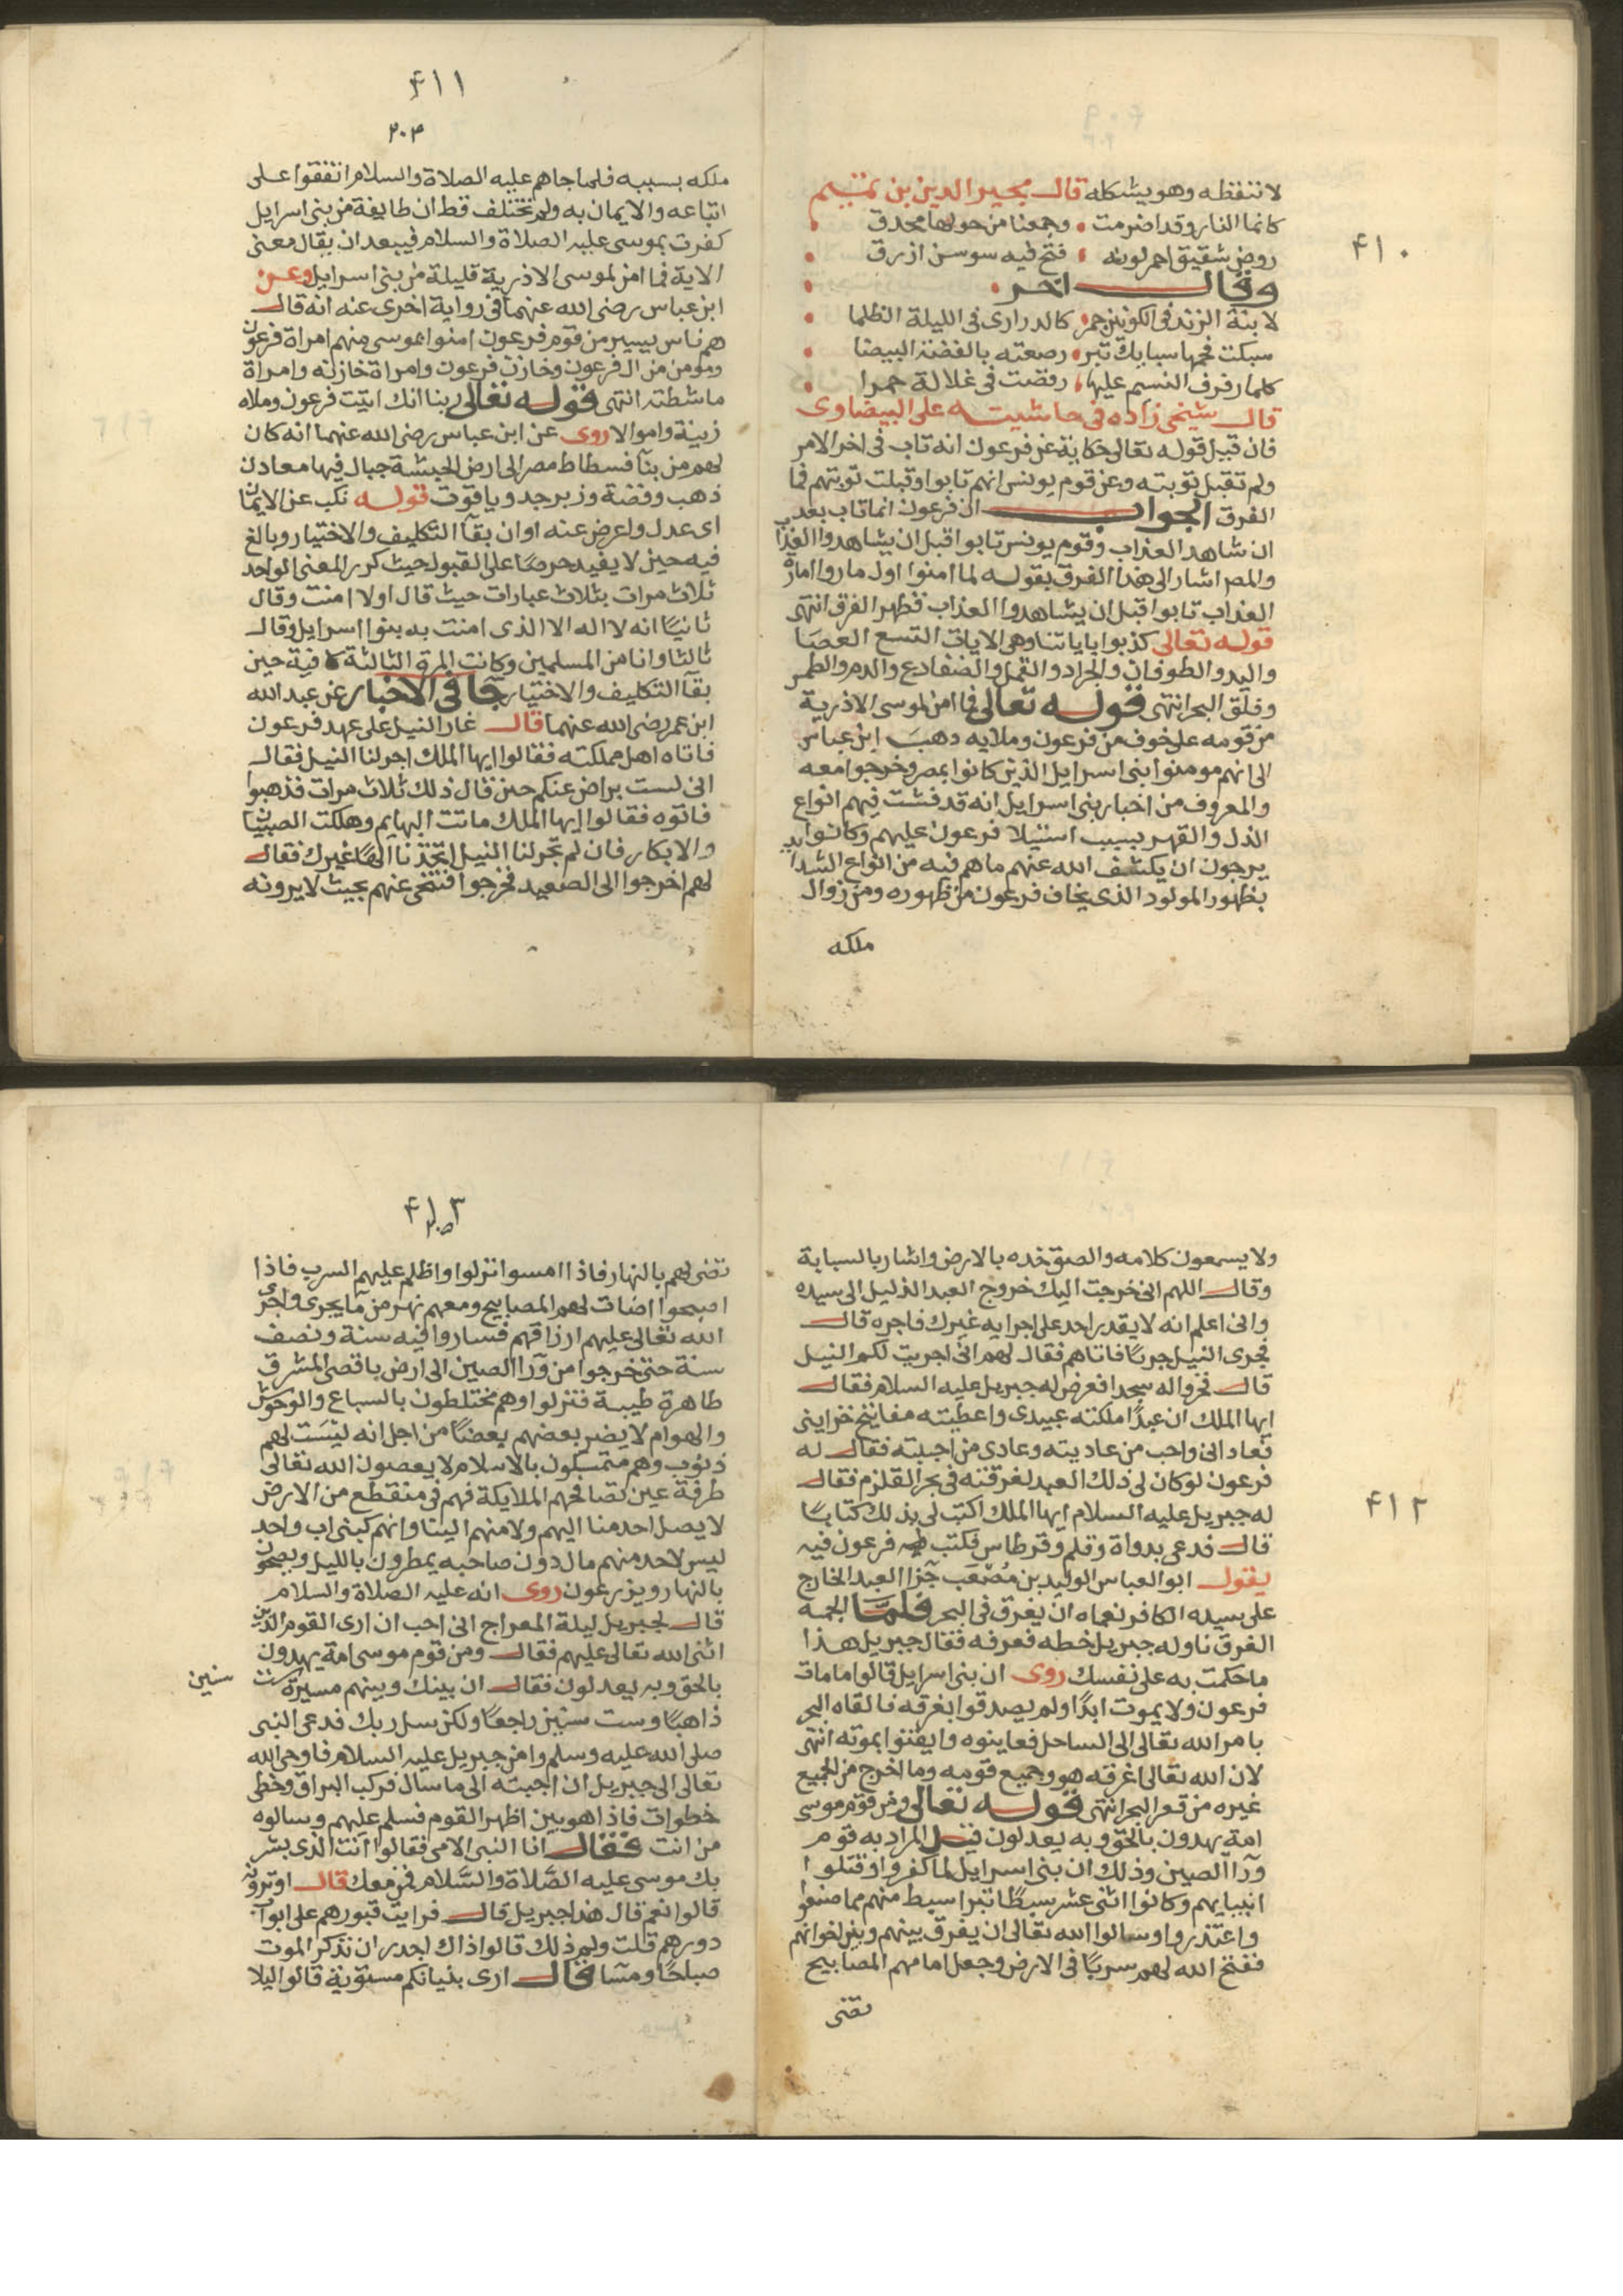 ٤١٠
لا تتفظه وهو يشكله قال مجير الدين بن تميم
كانما النار وقد اضرمت وجمعنا من حولها محدق
روض شقيق احمر لونه فتح فيه سوسن ازرق
وقال اخر
لابنة الزند فى الكوانين جمر كالدرارى فى الليلة الظلما
سبكت فحمها سبايك تبر رصعته بالفضة البيضا
كلما رفرف النسيم عليها رقصت فى غلالة حمرا
قال شيخى زاده فى حاشيته على البيضاوى
فان قيل قوله تعالى حكاية عن فرعون انه تاب فى اخر الامر
ولم تقبل توبته وعن قوم يونس انهم تابوا وقبلت توبتهم فما
الفرق الجواب ان فرعون انما تاب بعد
ان شاهد العذاب وقوم يونس تابوا قبل ان يشاهدوا العذاب
والمص اشار الى هذا الفرق بقوله لما امنوا اول ما روا امارة
العذاب تابوا قبل ان يشاهدوا العذاب فظهر الفرق انتهى
قوله تعالى كذبوا باياتنا وهى الايات التسع العصا
واليد والطوفان والجراد والقمل والضفادع والدم والطمس
وفلق البحر انتهى قوله تعالى فما امن لموسى الا ذرية
من قومه على خوف من فرعون وملايه ذهب ابن عباس
الى انهم مومنوا بنى اسرايل الذين كانوا بمصر وخرجوا معه
والمعروف من اخبار بنى اسرايل انه قد فشت فيهم انواع
الذل والقهر بسبب استيلا فرعون عليهم وكانوا
يرجون ان يكشف الله عنهم ما هم فيه من انواع الشدايد
بظهور المولود الذى يخاف فرعون من ظهوره ومن زوال
ملكه
٤١١
٢٠٣
ملكه بسببه فلما جاهم عليه الصلاة والسلام اتفقوا على
اتباعه والايمان به ولم تختلف قط ان طايفة من بنى اسرايل
كفرت بموسى عليه الصلاة والسلام فيبعد ان يقال معنى
الاية فما امن لموسى الا ذرية قليلة من بنى اسرايل وعن
ابن عباس رضى الله عنهما فى رواية اخرى عنه انه قال
هم ناس يسير من قوم فرعون امنوا بموسى منهم امراة فرعون
ومومن من ال فرعون وخازن فرعون وامراة خازنه وامراة
ماشطته انتهى قوله تعالى ربنا انك اتيت فرعون وملاه
زينة واموالا روى عن ابن عباس رضى الله عنهما انه كان
لهم من بنآ فسطاط مصر الى ارض الحبشة جبال فيها معادن
ذهب وفضة وزبرجد وياقوت قوله نكب عن الايمان
اى عدل واعرض عنه اوان بقآ التكليف والاختيار وبالغ
فيه حين لا يفيد حرصا على القبول حيث كرر المعنى الواحد
ثلاث مرات بثلاث عبارات حيث قال اولا امنت وقال
ثانيًا انه لا اله الا الذى امنت به بنوا اسرايل وقال
ثالثا وانا من المسلمين وكانت المرة الثالثة كافية حين
بقآ التكليف والاختيار جا فى الاخبار عن عبد الله
ابن عمر رضى الله عنهما قال غار النيل على عهد فرعون
فاتاه اهل مملكته فقالوا ايها الملك اجر لنا النيل فقال
انى لست براض عنكم حين قال ذلك ثلاث مرات فذهبوا
فاتوه فقالوا ايها الملك ماتت البهايم وهلكت الصبيان
والابكار فان لم تجر لنا النيل اتخذنا الهًا غيرك فقال
لهم اخرجوا الى الصعيد فخرجوا فتنحى عنهم بحيث لا يرونه
٤١٢
ولا يسمعون كلامه والصق خده بالارض واشار بالسبابة
وقال اللهم انى خرجت اليك خروج العبد الذليل الى سيده
وانى اعلم انه لا يقدر احد على اجرايه غيرك فاجره قال
فجرى النيل جريًا فاتاهم فقال لهم انى اجريت لكم النيل
قال فخروا له سجدا فعرض له جبريل عليه السلام فقال
ايها الملك ان عبدًا ملكته عبيدى واعطيته مفاتيح خزاينى
فعادانى واحب من عاديته وعادى من احببته فقال له
فرعون لو كان لى ذلك العبد لغرقته فى بحر القلزم فقال
له جبريل عليه السلام ايها الملك اكتب لى بذلك كتابًا
قال فدعى بدواة وقلم وقرطاس فكتب فرعون فيه
يقول ابو العباس الوليد بن مُصْعَب جزا العبد الخارج
على سيده الكافر نعماه ان يغرق فى البحر فلما الجمه
الغرق ناوله جبريل خطه فعرفه فقال جبريل هذا
ما حكمت به على نفسك روى ان بنى اسرايل قالوا ما مات
فرعون ولا يموت ابدًا ولم يصدقوا بغرقه فالقاه البحر
بامر الله تعالى الى الساحل فعاينوه وايقنوا بموته انتهى
لان الله تعالى اغرقه هو وجميع قومه وما اخرج من الجميع
غيره من قعر البحر انتهى قوله تعالى ومن قوم موسى
امة يهدون بالحق وبه يعدلون قيل المراد به قوم
ورآ الصين وذلك ان بنى اسرايل لما كفروا وقتلوا
انبيايهم وكانوا اثنى عشر سبطًا تبرا سبط منهم مما صنعوا
واعتذروا وسالوا الله تعالى ان يفرق بينهم وبين اخوانهم
ففتح الله لهم سربًا فى الارض وجعل امامهم المصابيح
تضى
٤١٣
تضى لهم بالنهار فاذا امسوا نزلوا واظلم عليهم السرب فاذا
اصبحوا اضات لهم المصابيح ومعهم نهر من مآ يجرى واجرى
الله تعالى عليهم ارزاقهم فساروا فيه سنة ونصف
سنة حتى خرجوا من ورآ الصين الى ارض باقصى المشرق
طاهرة طيبة فنزلوا وهم مختلطون بالسباع والوحوش
والهوام لا يضر بعضهم بعضًا من اجل انه ليست لهم
ذنوب وهم متمسكون بالاسلام لا يعصون الله تعالى
طرفة عين تصافحهم الملايكة فهم فى منقطع من الارض
لا يصل احد منا اليهم ولا منهم الينا وانهم كبنى اب واحد
ليس لاحد منهم مال دون صاحبه يمطرون بالليل ويصحون
بالنهار ويزرعون روى انه عليه الصلاة والسلام
قال لجبريل ليلة المعراج انى احب ان ارى القوم الذين
اثنى الله تعالى عليهم فقال ومن قوم موسى امة يهدون
بالحق وبه يعدلون فقال ان بينك وبينهم مسيرة ست سنين
ذاهبًا وست سنين راجعًا ولكن سل ربك فدعى النبى
صلى الله عليه وسلم وامن جبريل عليه السلام فاوحى الله
تعالى الى جبريل ان اجبته الى ما سال فركب البراق وخطى
خطوات فاذا هو بين اظهر القوم فسلم عليهم وسالوه
من انت فقال انا النبى الامى فقالوا آنت الذى بشر
بك موسى عليه الصَّلاة والسَّلام فمن معك قال اوترونه
قالوا نعم قال هذا جبريل قال فرايت قبورهم على ابواب
دورهم قلت ولم ذلك قالوا ذاك اجدر ان نذكر الموت
صباحًا ومسآ فقال ارى بنيانكم مستوية قالوا ليلا